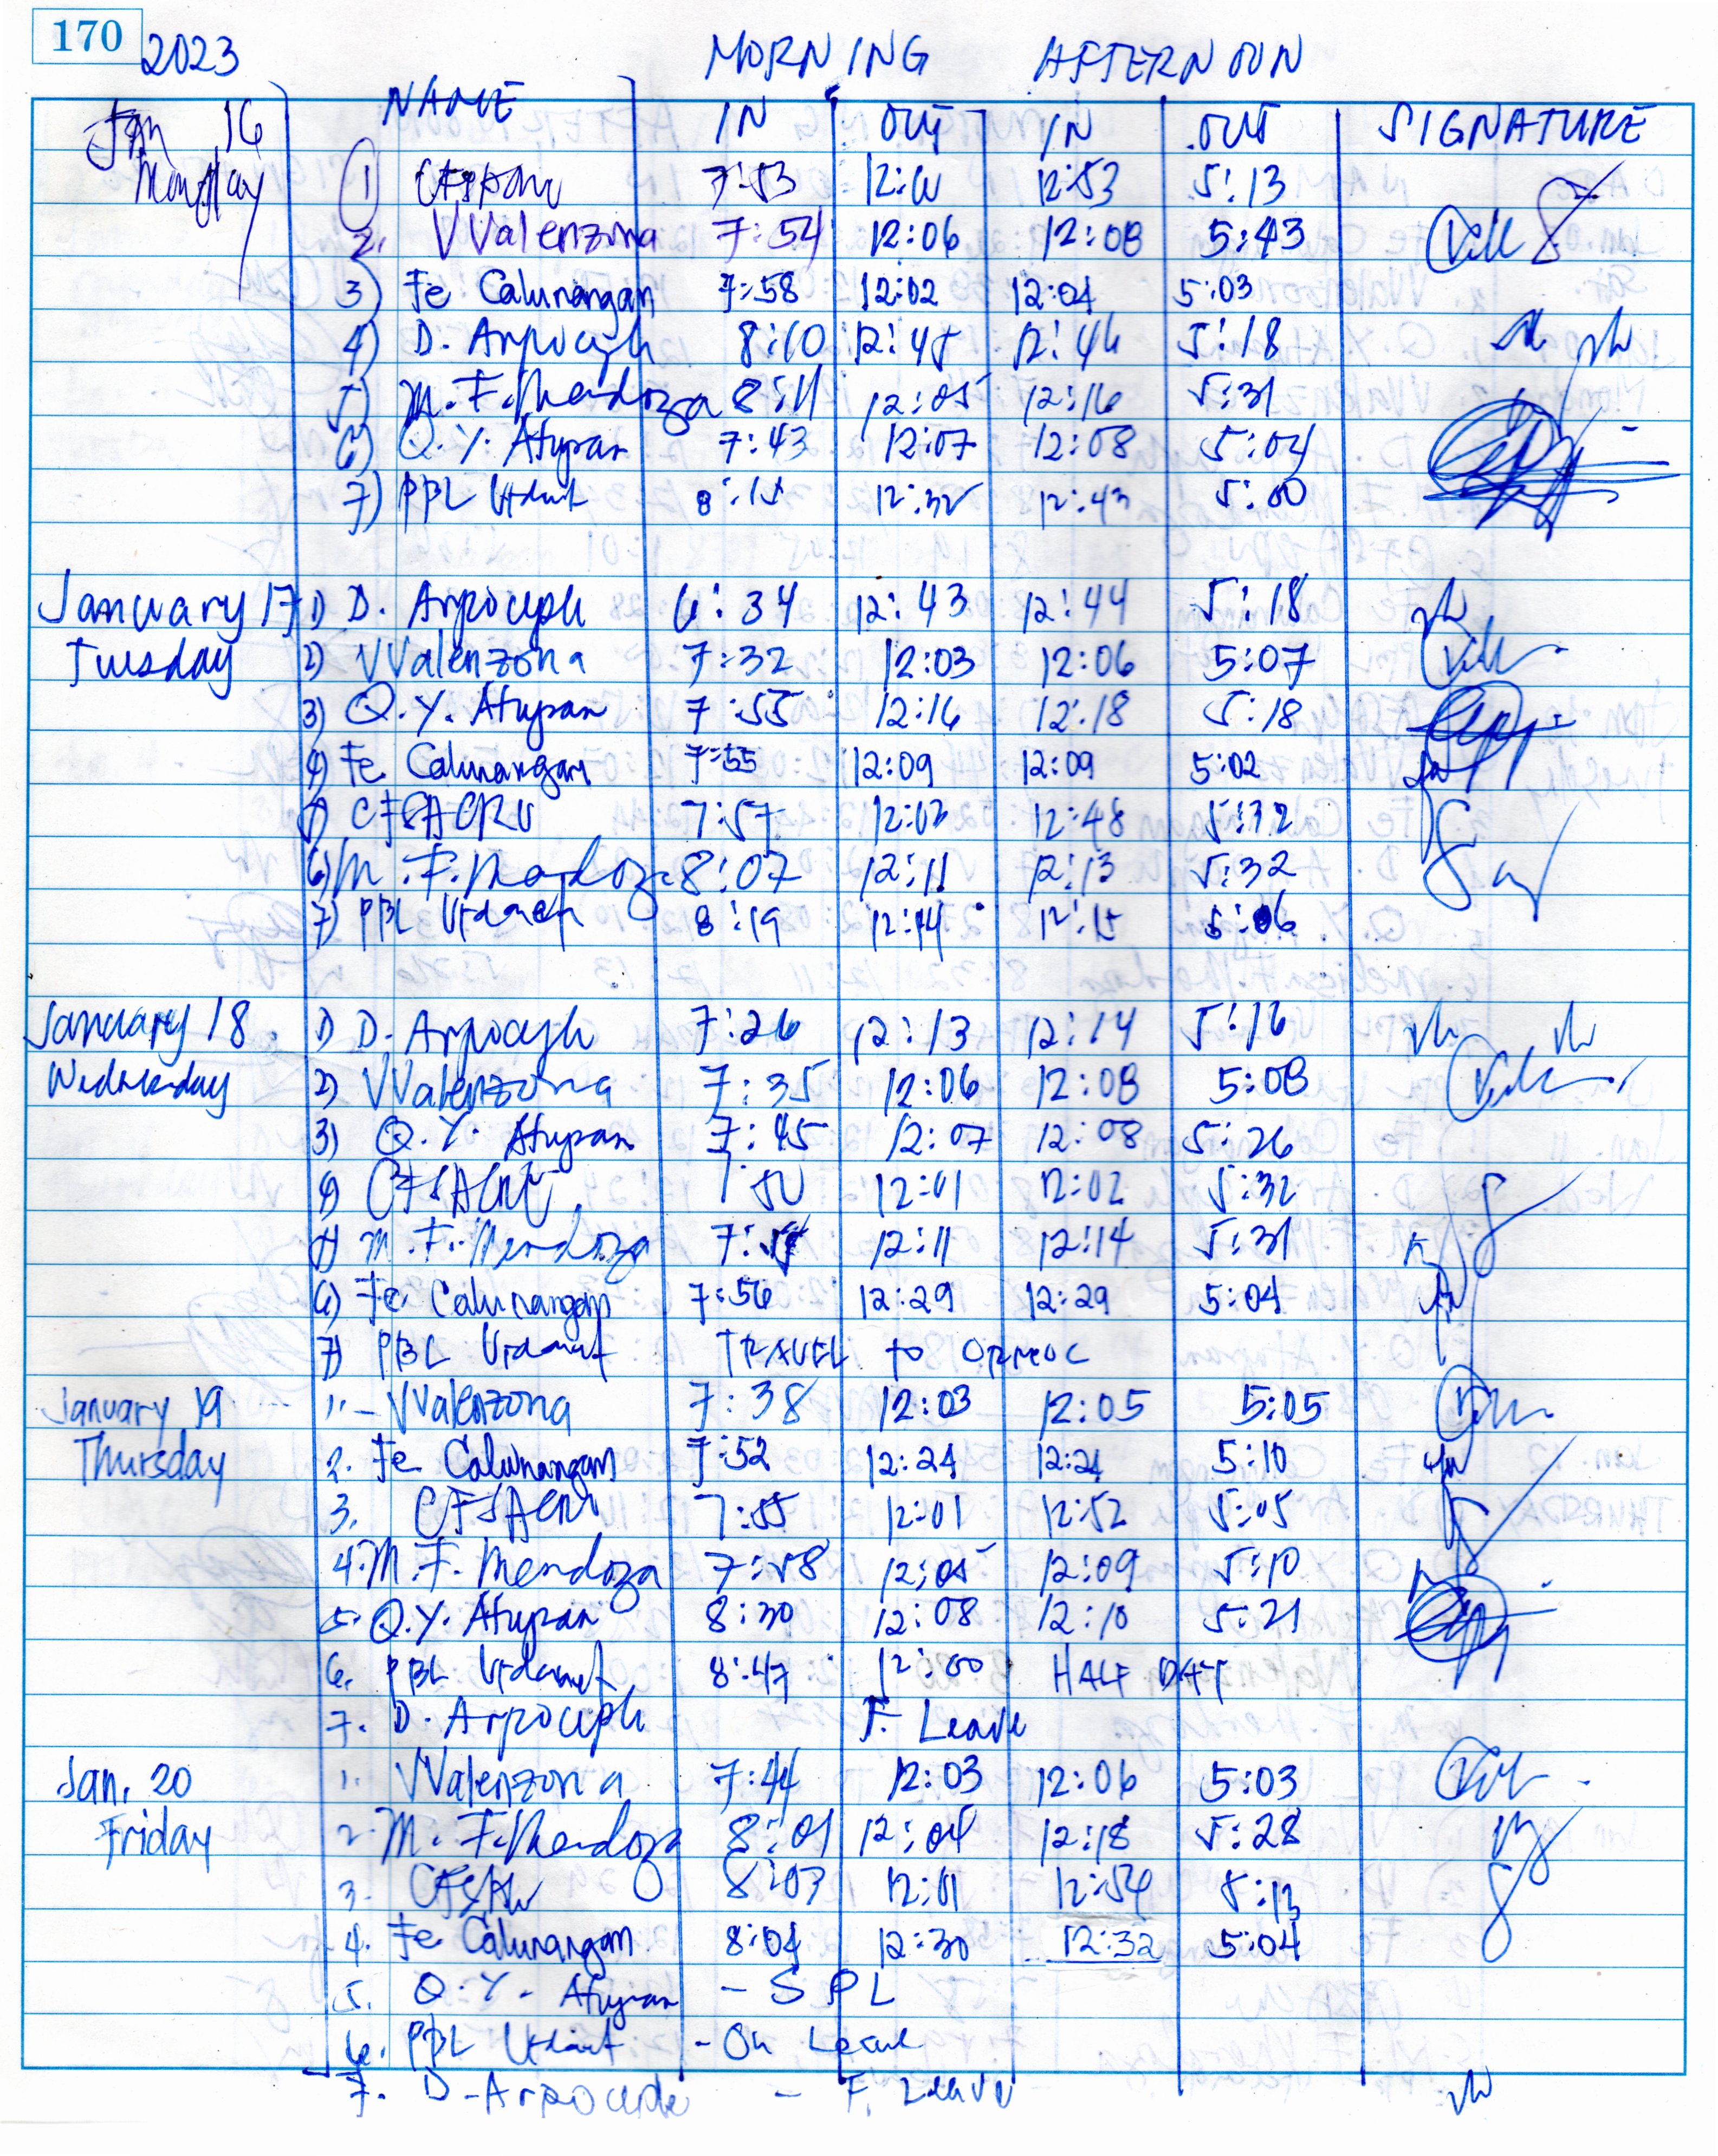 170
2023 MORNING AFTERNOON
NAME IN OUT IN OUT SIGNATURE
Jan 16
Monday
1 7:53 12:53 5:13
2. VValenzona 7:54 12:06 12:08 5:43
3) Fe Calunangan 7:58 12:02 12:04 5:03
4) D. 8:10 12:45 12:46 5:18
5) M. F. Mendoza 8:11 12:05 12:16 5:31
6) Q. Y. Atupan 7:43 12:07 12:08 5:04
7) PBL 8:15 12:32 12:43 5:00
January 17 1) D. 6:34 12:43 12:44 5:18
Tuesday 2) VValenzona 7:32 12:03 12:06 5:07
3) Q. Y. Atupan 7:55 12:16 12:18 5:18
4) Fe Calunangan 7:55 12:09 12:09 5:02
5) 7:57 12:48
6) M. F. Mendoza 8:07 12:11 12:13 5:32
7) PBL 8:19 12:14 12:15 5:06
January 18 1) D. 7:26 12:13 12:14 5:16
Wednesday 2) VValenzona 7:35 12:06 12:08 5:08
3) Q. Y. Atupan 7:45 12:07 12:08 5:26
4) 12:01 12:02 5:32
5) M. F. Mendoza 12:11 12:14 5:31
6) Fe Calunangan 7:56 12:29 12:29 5:04
7) PBL TRAVEL to
January 19 1. - VValenzona 7:38 12:03 12:05 5:05
Thursday 2. Fe Calunangan 7:52 12:24 12:24 5:10
3. 7:55 12:01 12:52 5:05
4. M. F. Mendoza 7:58 12:05 12:09 5:10
5. Q. Y. Atupan 8:30 12:08 12:10 5:21
6. PBL 8:47 12:00 HALF DAY
7. D. F. Leave
Jan. 20 1. VValenzona 7:44 12:03 12:06 5:03
Friday 2. M. F. Mendoza 8:01 12:04 12:18 5:28
3. 8:03 12:01 12:54
4. Fe Calunangan 8:04 12:30 12:32 5:04
5. Q. Y. Atupan - SPL
6. PBL - On Leave
7. D. - F. Leave